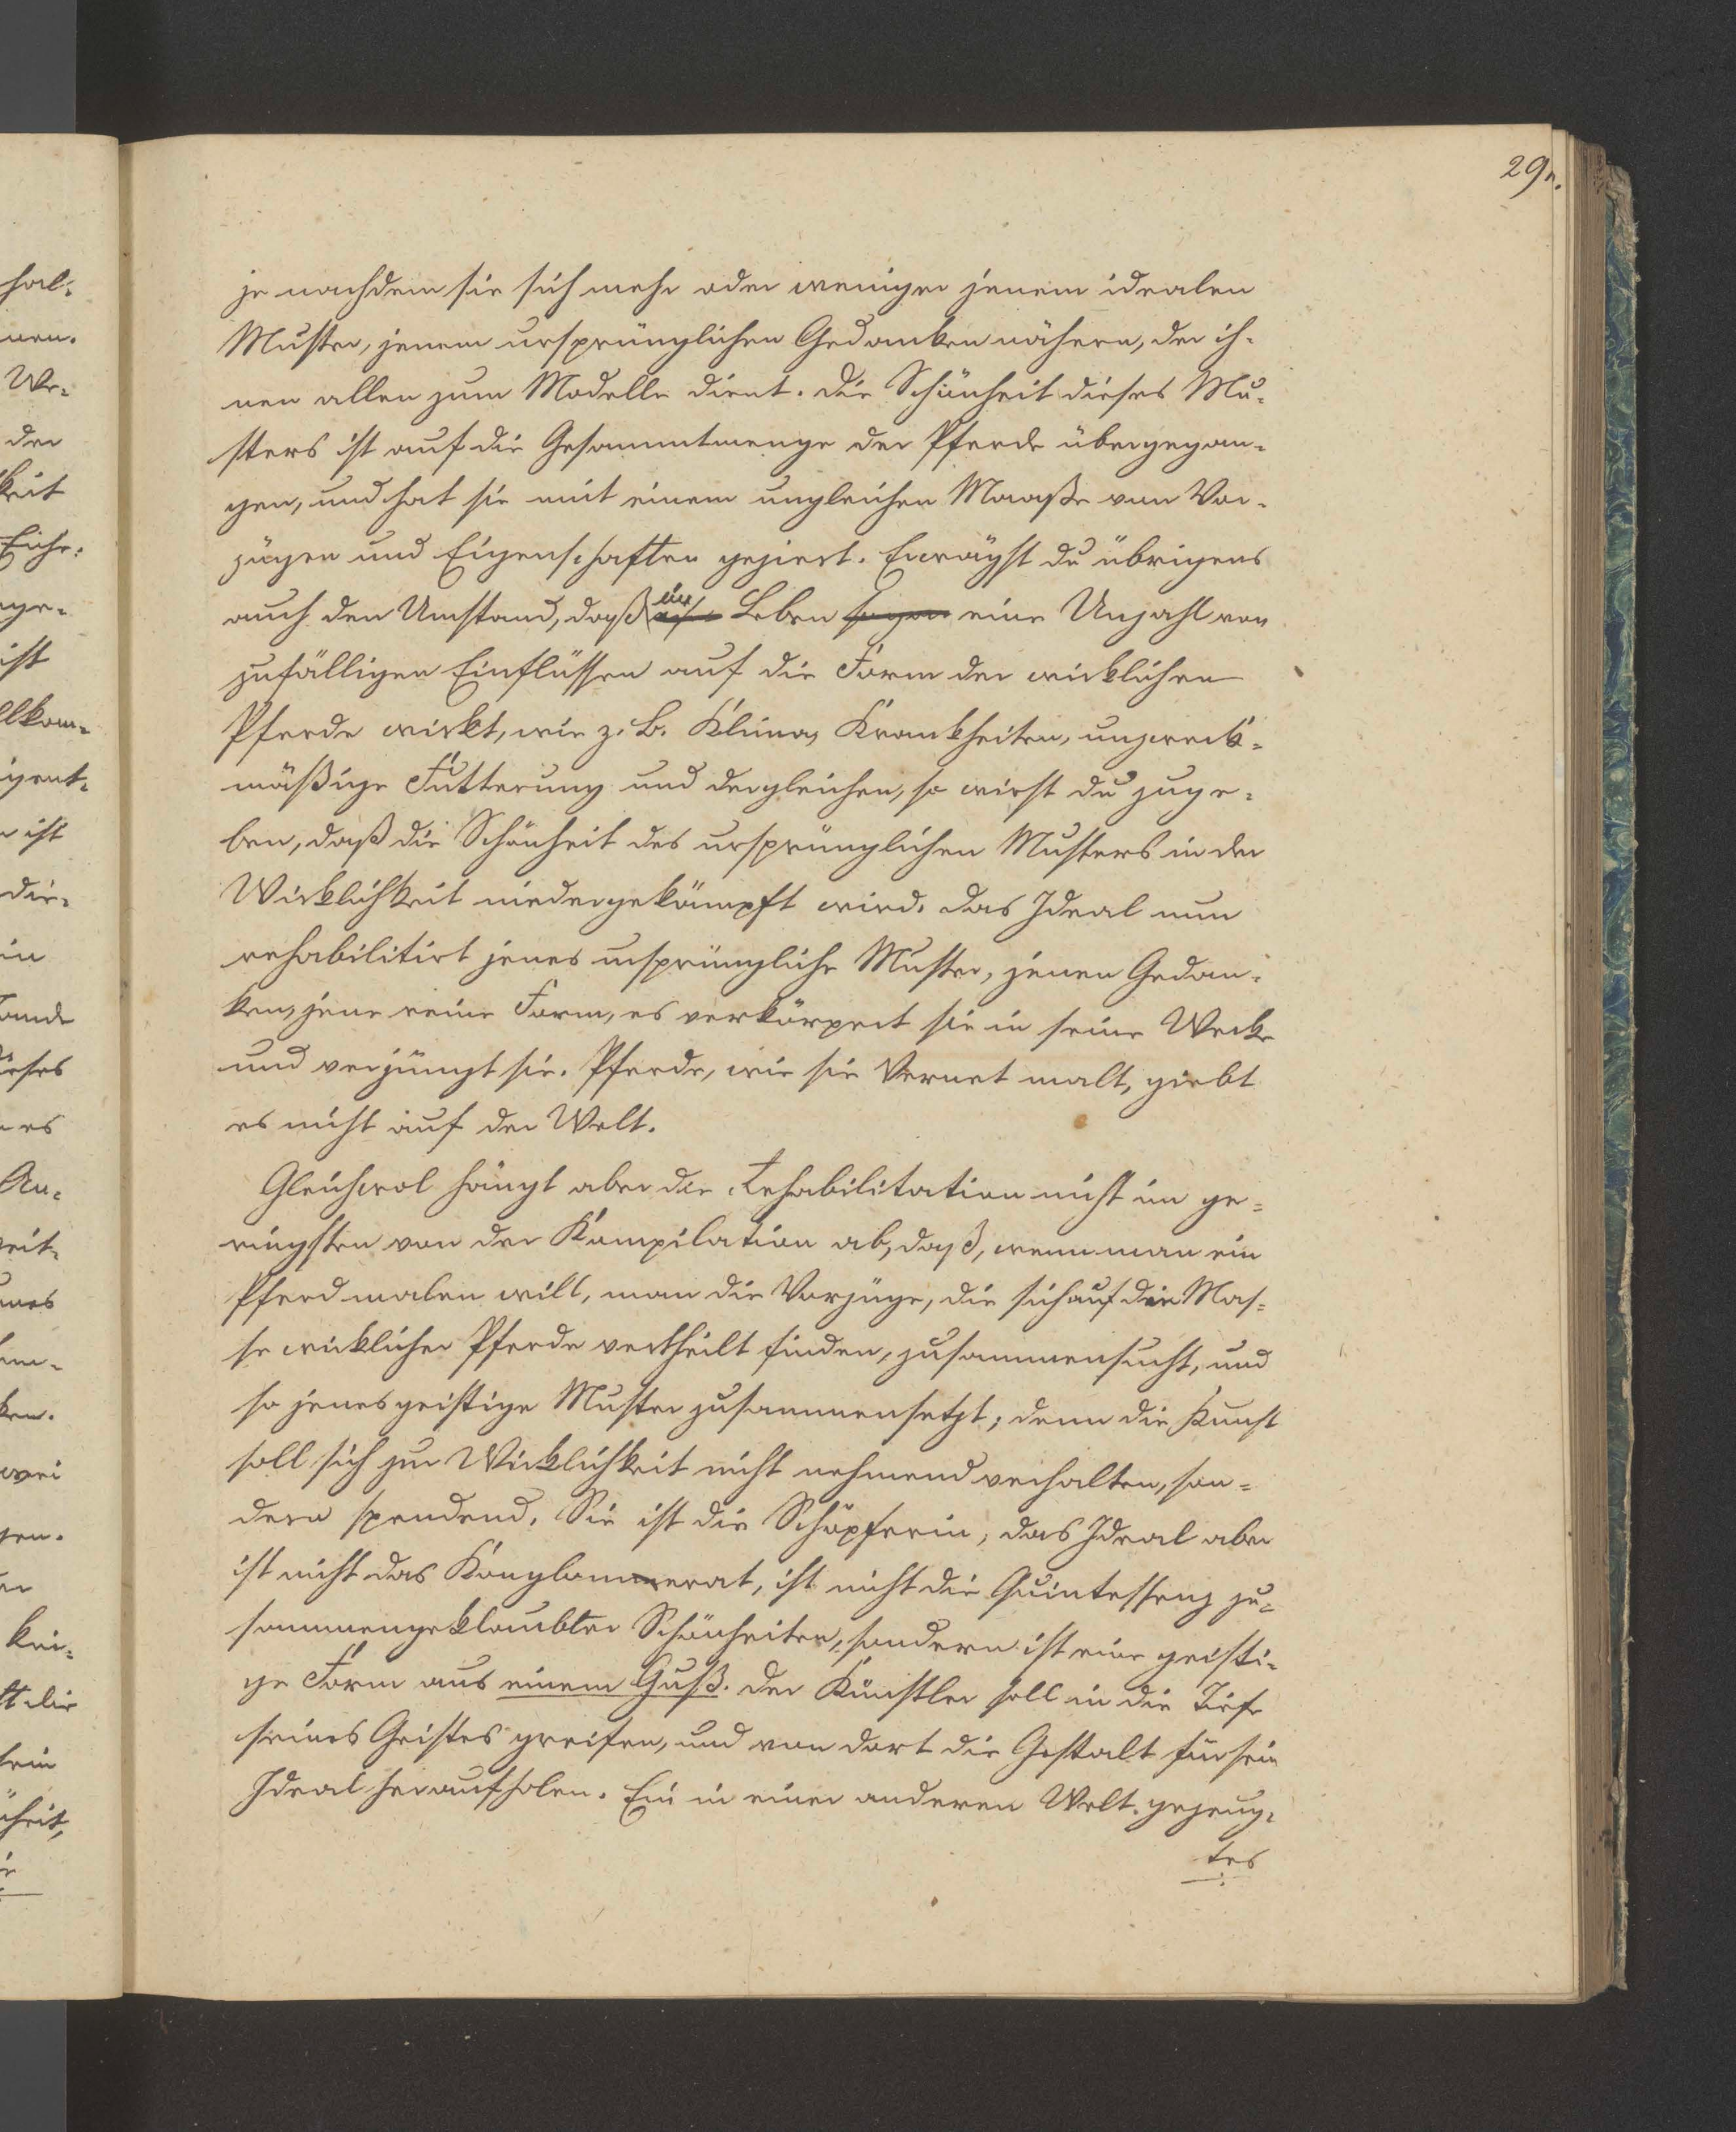 29r.
hal-
nen.
We-
der
keit
Eiche.
ge-
ist
llkom-
igent-
ist
die-
in
ande
ieses
es
An-
eit-
mes
ken.
wei
gen.
kei-
ft die
sein
heit,
je nachdem sie sich mehr oder weniger jenem idealen
Muster, jenem ursprünglichen Gedanken nähern, der ih-
nen allen zum Modelle dient. Die Schönheit dieses Mu-
sters ist auf die Gesammtmenge der Pferde übergegan-
gen, und hat sie mit einem ungleichen Maaße von Vor-
zügen und Eigenschaften geziert. Erwägst du übrigens
auch den Umstand, daß im Leben sogar eine Unzahl von
zufälligen Einflüssen auf die Form der wirklichen
Pferde wirkt, wie z. B. Klima, Krankheiten, unzweck-
mäßige Fütterung und dergleichen, so wirst du zuge-
ben, daß die Schönheit des ursprünglichen Musters in der
Wirklichkeit niedergekämpft wird. Das Ideal nun
rehabilitirt jenes ursprüngliche Muster, jenen Gedan-
ken, jene reine Form, es verkörpert sie in seine Werke
und verjüngt sie. Pferde, wie sie Vernet malt, giebt
es nicht auf der Welt.
Gleichwol hängt aber die Rehabilitation nicht im ge-
ringsten von der Kompilation ab, daß, wenn man ein
Pferd malen will, man die Vorzüge, die sich auf die Mas-
se wirklicher Pferde vertheilt finden, zusammensucht, und
so jenes geistige Muster zusammensetzt; denn die Kunst
soll sich zur Wirklichkeit nicht nehmend verhalten, son-
dern spendend. Sie ist die Schöpferin; das Ideal aber
ist nicht das Konglommerat, ist nicht die Quintessenz zu-
sammengeklaubter Schönheiten, sondern ist eine geisti-
ge Form aus einem Guß. Der Künstler soll in die Tiefe
seines Geistes greifen, und von dort die Gestalt für sein
Ideal heraufholen. Ein in einer anderen Welt gezeug-
tes